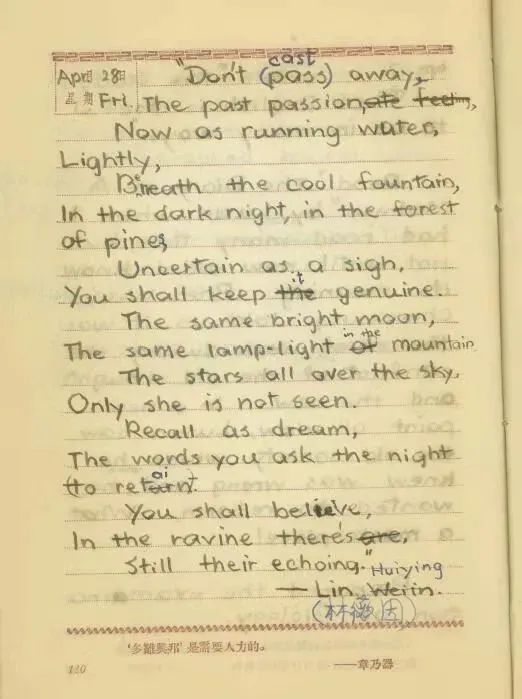 cast
"Don't (pass) away,
April 28日
星期 Fri.
The past passion,ate feeling,
Now as running water,
Lightly,
Beneath the cool fountain,
In the dark night, in the forest
of pines,
Uncertain as a sigh,
it
You shall keep the genuine.
The same bright moon,
in the
The same lamp-light of mountain
The stars all over the sky,
Only she is not seen.
Recall as dream,
The words you ask the night
ai
(to return.
You shall believe,
In the ravine there's are,
Still their echoing."
Huiying
— Lin Weiin.
(林徽因)
'多難興邦' 是需要人力的。
120
——章乃器